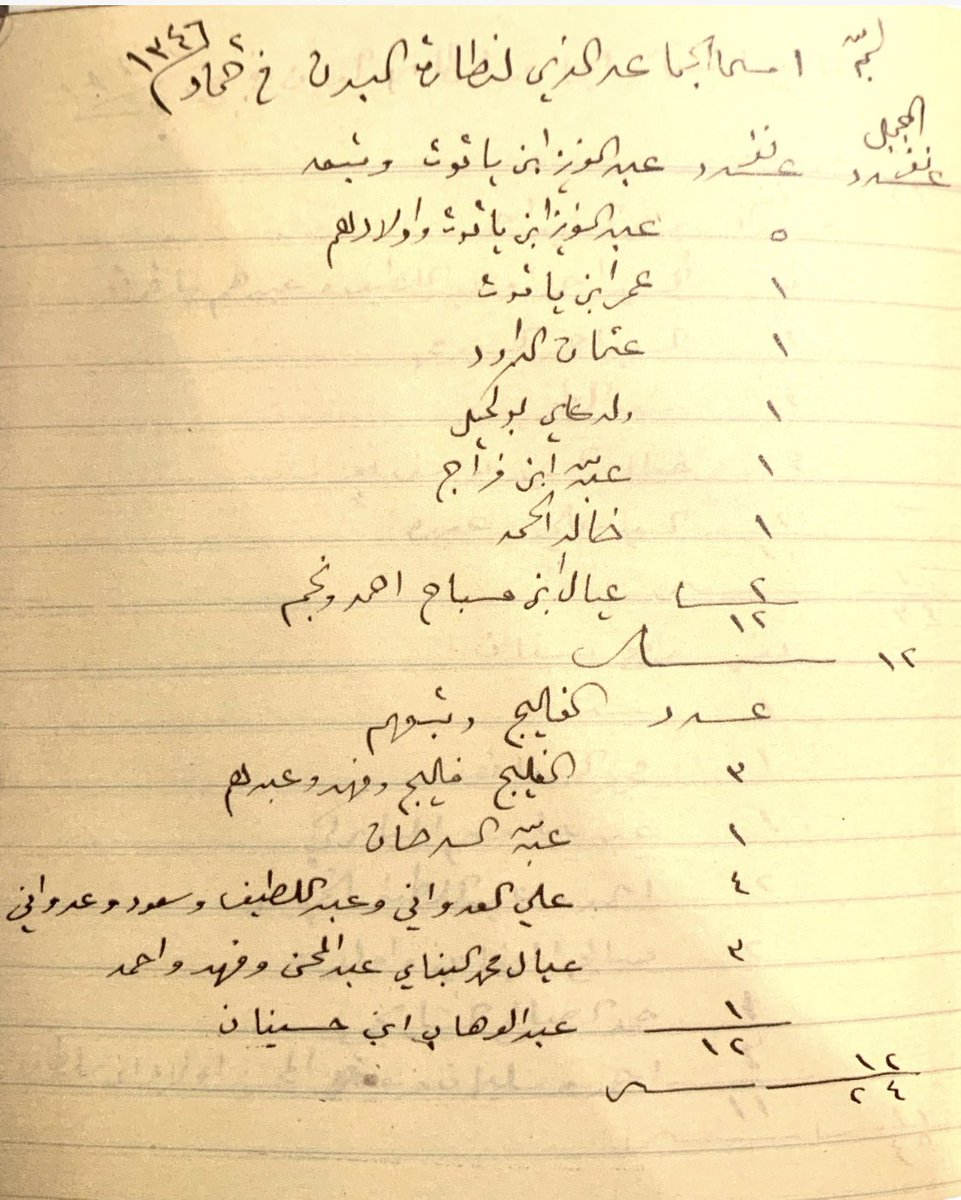 اسماء الجماعه الذي لنطارة البدن في ٢ جماد ١٣٤٦
الجبيل
عدد نفر عدد نفر عبدالعزيز ابن ياقوت وتبعه
٥ عبدالعزيز ابن ياقوت واولادهم
١ عمر ابن ياقوت
١ عثمان الداود
١ ولد علي
١ عبدالله ابن فراج
١ خالد الحمد
٢ عيال ابن مسباح احمد ونجم
١٢
١٢
عدد الفليج وتبعهم
٣ الفليج فليج وفهد وعبدهم
١ عبدالله السرحان
٤ علي العدواني وعبداللطيف وسعود وعدواني
٣ عيال محمد البناي عبدالمحسن وفهد واحمد
١ عبدالوهاب ابن حسينان
١٢
١٢
٢٤